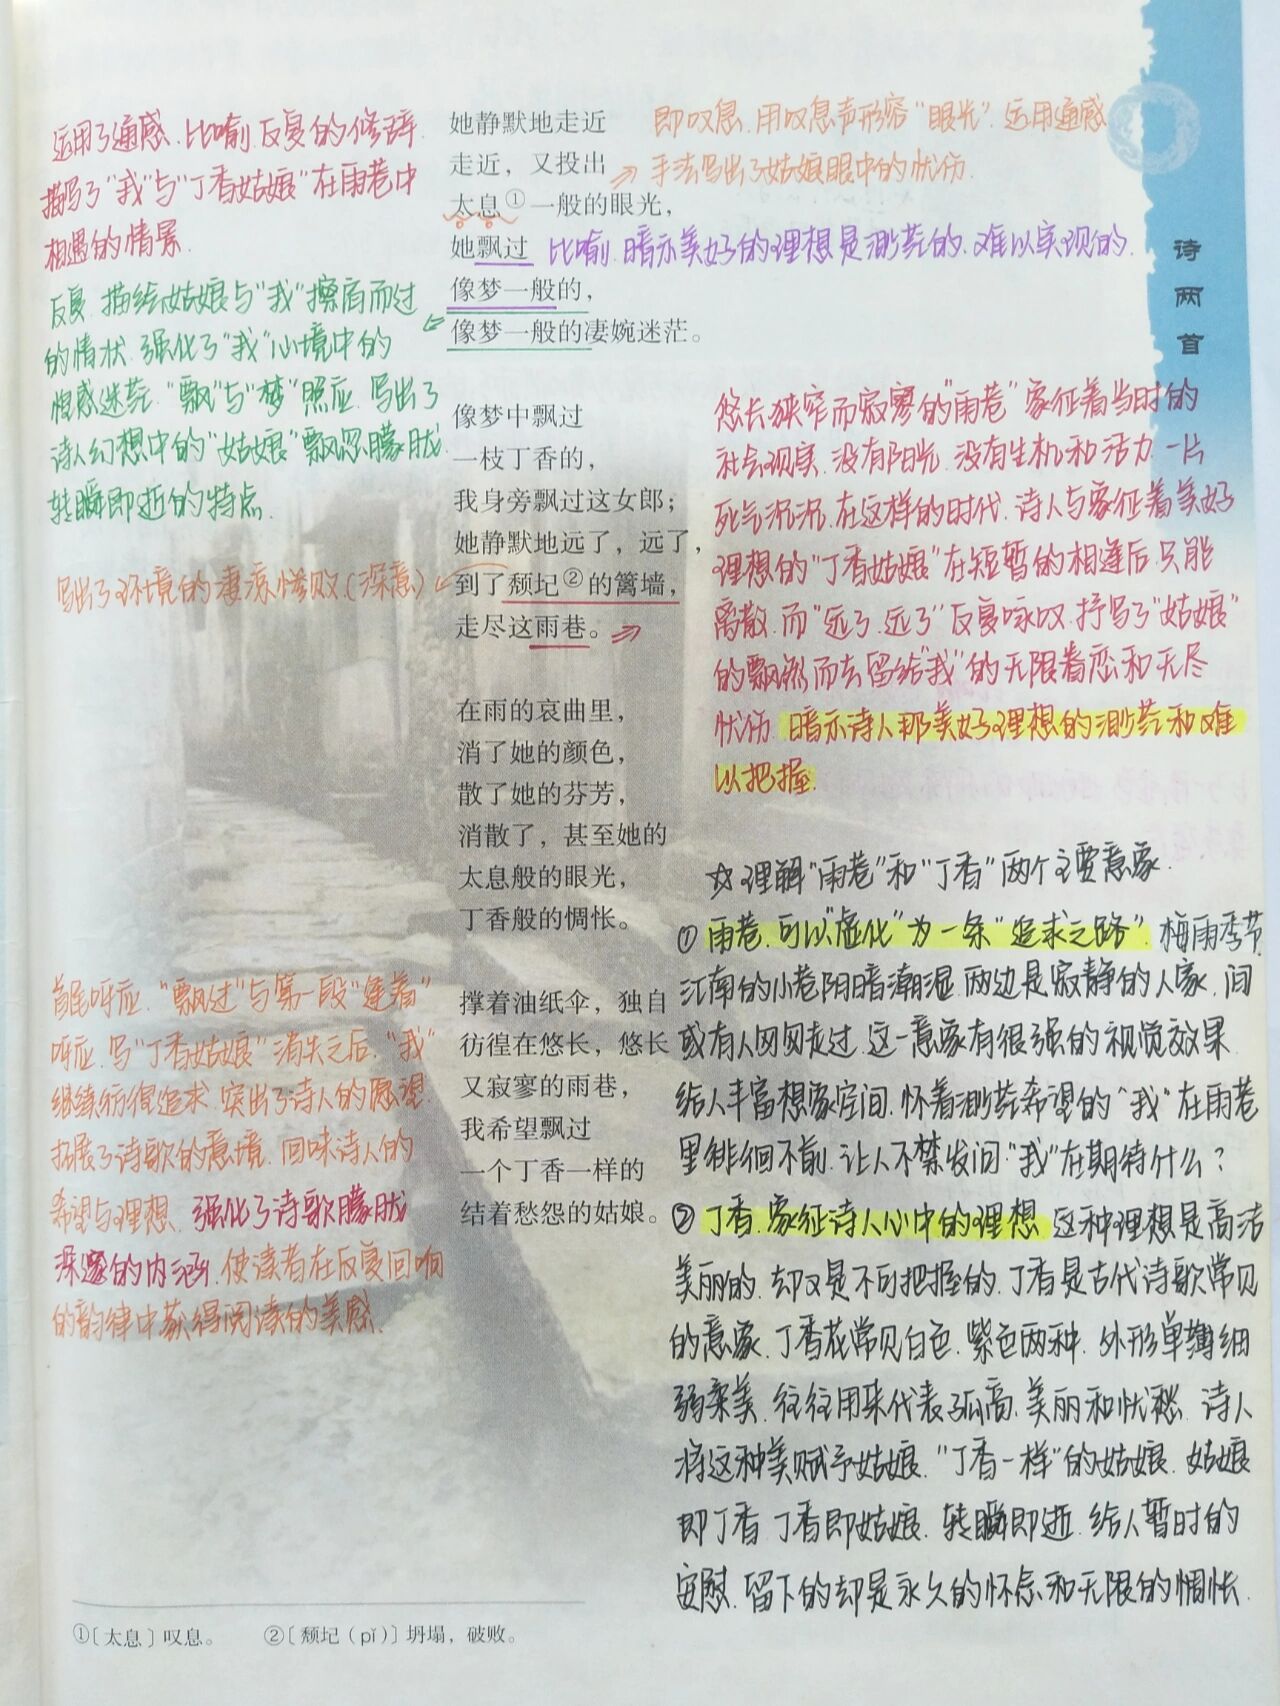 她静默地走近
走近，又投出
太息①一般的眼光，
她飘过
像梦一般的，
像梦一般的凄婉迷茫。
像梦中飘过
一枝丁香的，
我身旁飘过这女郎；
她静默地远了，远了，
到了颓圮②的篱墙，
走尽这雨巷。
在雨的哀曲里，
消了她的颜色，
散了她的芬芳，
消散了，甚至她的
太息般的眼光，
丁香般的惆怅。
撑着油纸伞，独自
彷徨在悠长，悠长
又寂寥的雨巷，
我希望飘过
一个丁香一样的
结着愁怨的姑娘。
运用了通感、比喻、反复的修辞.
描写了“我”与“丁香姑娘”在雨巷中
相遇的情景.
反复.描绘姑娘与“我”擦肩而过
的情状.强化了“我”心境中的
情感迷茫.“飘”与“梦”照应.写出了
诗人幻想中的“姑娘”飘忽朦胧.
转瞬即逝的特点.
写出了环境的凄凉惨败(深意)
首尾呼应.“飘过”与第一段“逢着”
呼应.写“丁香姑娘”消失之后.“我”
继续彷徨追求.突出了诗人的愿望.
拓展了诗歌的意境.回味诗人的
希望与理想.强化了诗歌朦胧
深邃的内涵.使读者在反复回响
的韵律中获得阅读的美感.
即叹息.用叹息声形容“眼光”.运用通感
手法写出了姑娘眼中的忧伤.
比喻.暗示美好的理想是渺茫的.难以实现的.
悠长狭窄而寂寥的“雨巷”象征着当时的
社会现实.没有阳光.没有生机和活力.一片
死气沉沉.在这样的时代.诗人与象征着美好
理想的“丁香姑娘”在短暂的相逢后.只能
离散.而“远了.远了”反复咏叹.抒写了“姑娘”
的飘然而去留给“我”的无限眷恋和无尽
忧伤.暗示诗人那美好理想的渺茫和难
以把握.
☆理解“雨巷”和“丁香”两个主要意象.
①雨巷.可以“虚化”为一条“追求之路”.梅雨季节.
江南的小巷阴暗潮湿.两边是寂静的人家.间
或有人匆匆走过.这一意象有很强的视觉效果.
给人丰富想象空间.怀着渺茫希望的“我”在雨巷
里徘徊不前.让人不禁发问“我”在期待什么？
②丁香.象征诗人心中的理想.这种理想是高洁
美丽的.却又是不可把握的.丁香是古代诗歌常见
的意象.丁香花常见白色.紫色两种.外形单薄细
弱柔美.往往用来代表孤高、美丽和忧愁.诗人
将这种美赋予姑娘.“丁香一样”的姑娘.姑娘
即丁香.丁香即姑娘.转瞬即逝.给人暂时的
安慰.留下的却是永久的怀念和无限的惆怅.
①〔太息〕叹息。　②〔颓圮（pǐ）〕坍塌，破败。
诗两首